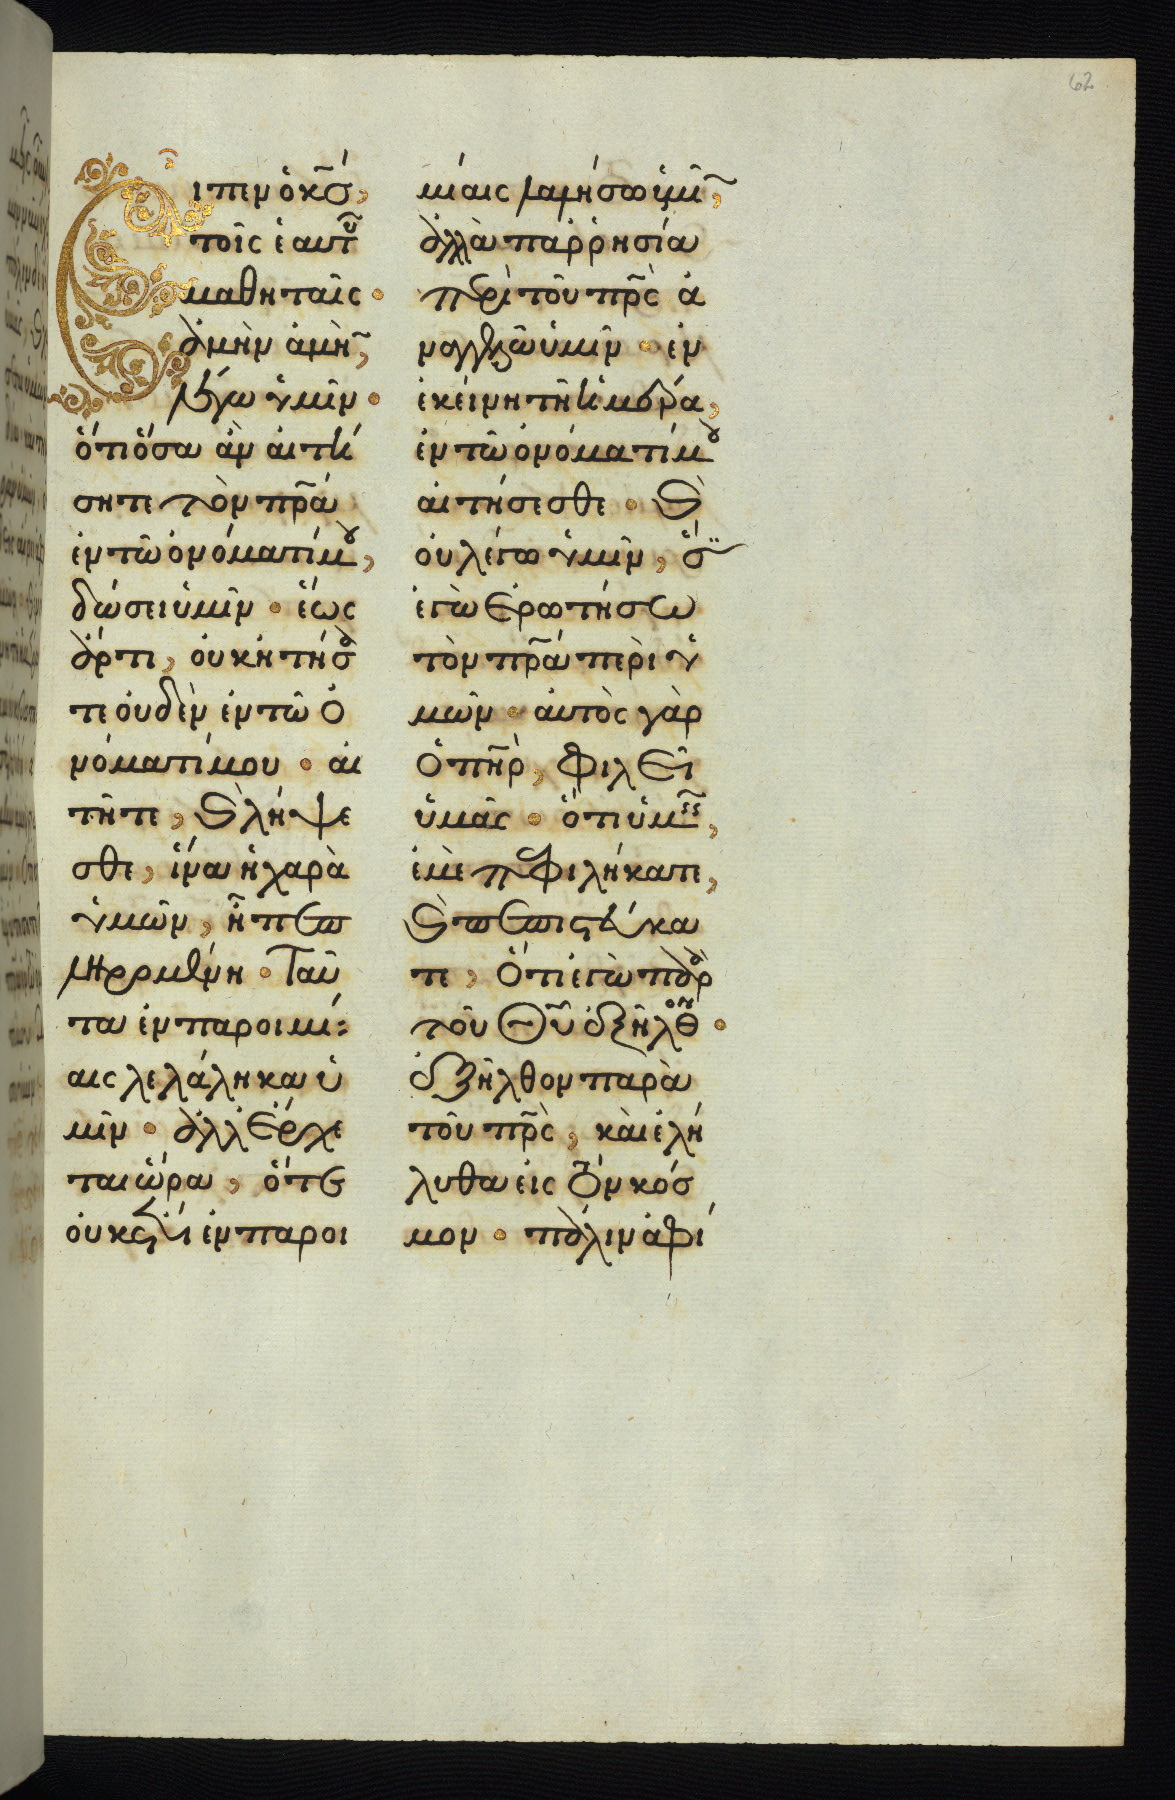 62
Ειπεν ὁ κς̄,
τοῖς ἑαυτοῦ
μαθηταῖς·
ἀμὴν ἀμὴν,
λέγω ὑμῖν·
ὅτι ὅσα ἂν αἰτή
σητε τὸν πρ̄α
ἐν τῶ ὀνόματί μου,
δώσει ὑμῖν· ἕως
ἄρτι, οὐκ ἠτήσα
τε οὐδὲν ἐν τῶ ὀ
νόματί μου· αἰ
τῆτε, καὶ λήψε
σθε, ἵνα ἡ χαρὰ
ὑμῶν, ἦ πεπ
ληρωμένη· Ταῦ
τα ἐν παροιμί
αις λελάληκα ὑ
μῖν· ἀλλ ἔρχε
ται ὥρα, ὅτε
οὐκ ἔτι ἐν παροι
μίαις λαλήσω ὑμῖν,
ἀλλὰ παρρησία
περὶ τοῦ πρ̄ς ἀ
ναγγελῶ ὑμῖν· ἐν
ἐκείνη τῆ ἡμέρα,
ἐν τῶ ὀνόματί μου
αἰτήσεσθε· καὶ
οὐ λέγω ὑμῖν, ὅτι
ἐγὼ ἐρωτήσω
τὸν πρ̄α περὶ ὑ
μῶν· αὐτὸς γὰρ
ὁ πη̄ρ, φιλεῖ
ὑμᾶς· ὅτι ὑμεῖς,
ἐμὲ πεφιλήκατε,
καὶ πεπιστεύκα
τε, ὅτι ἐγὼ παρὰ
τοῦ Θῡ ἐξῆλθον·
ἐξῆλθον παρὰ
τοῦ πρ̄ς, καὶ ἐλή
λυθα εἰς τὸν κόσ
μον· πάλιν ἀφί